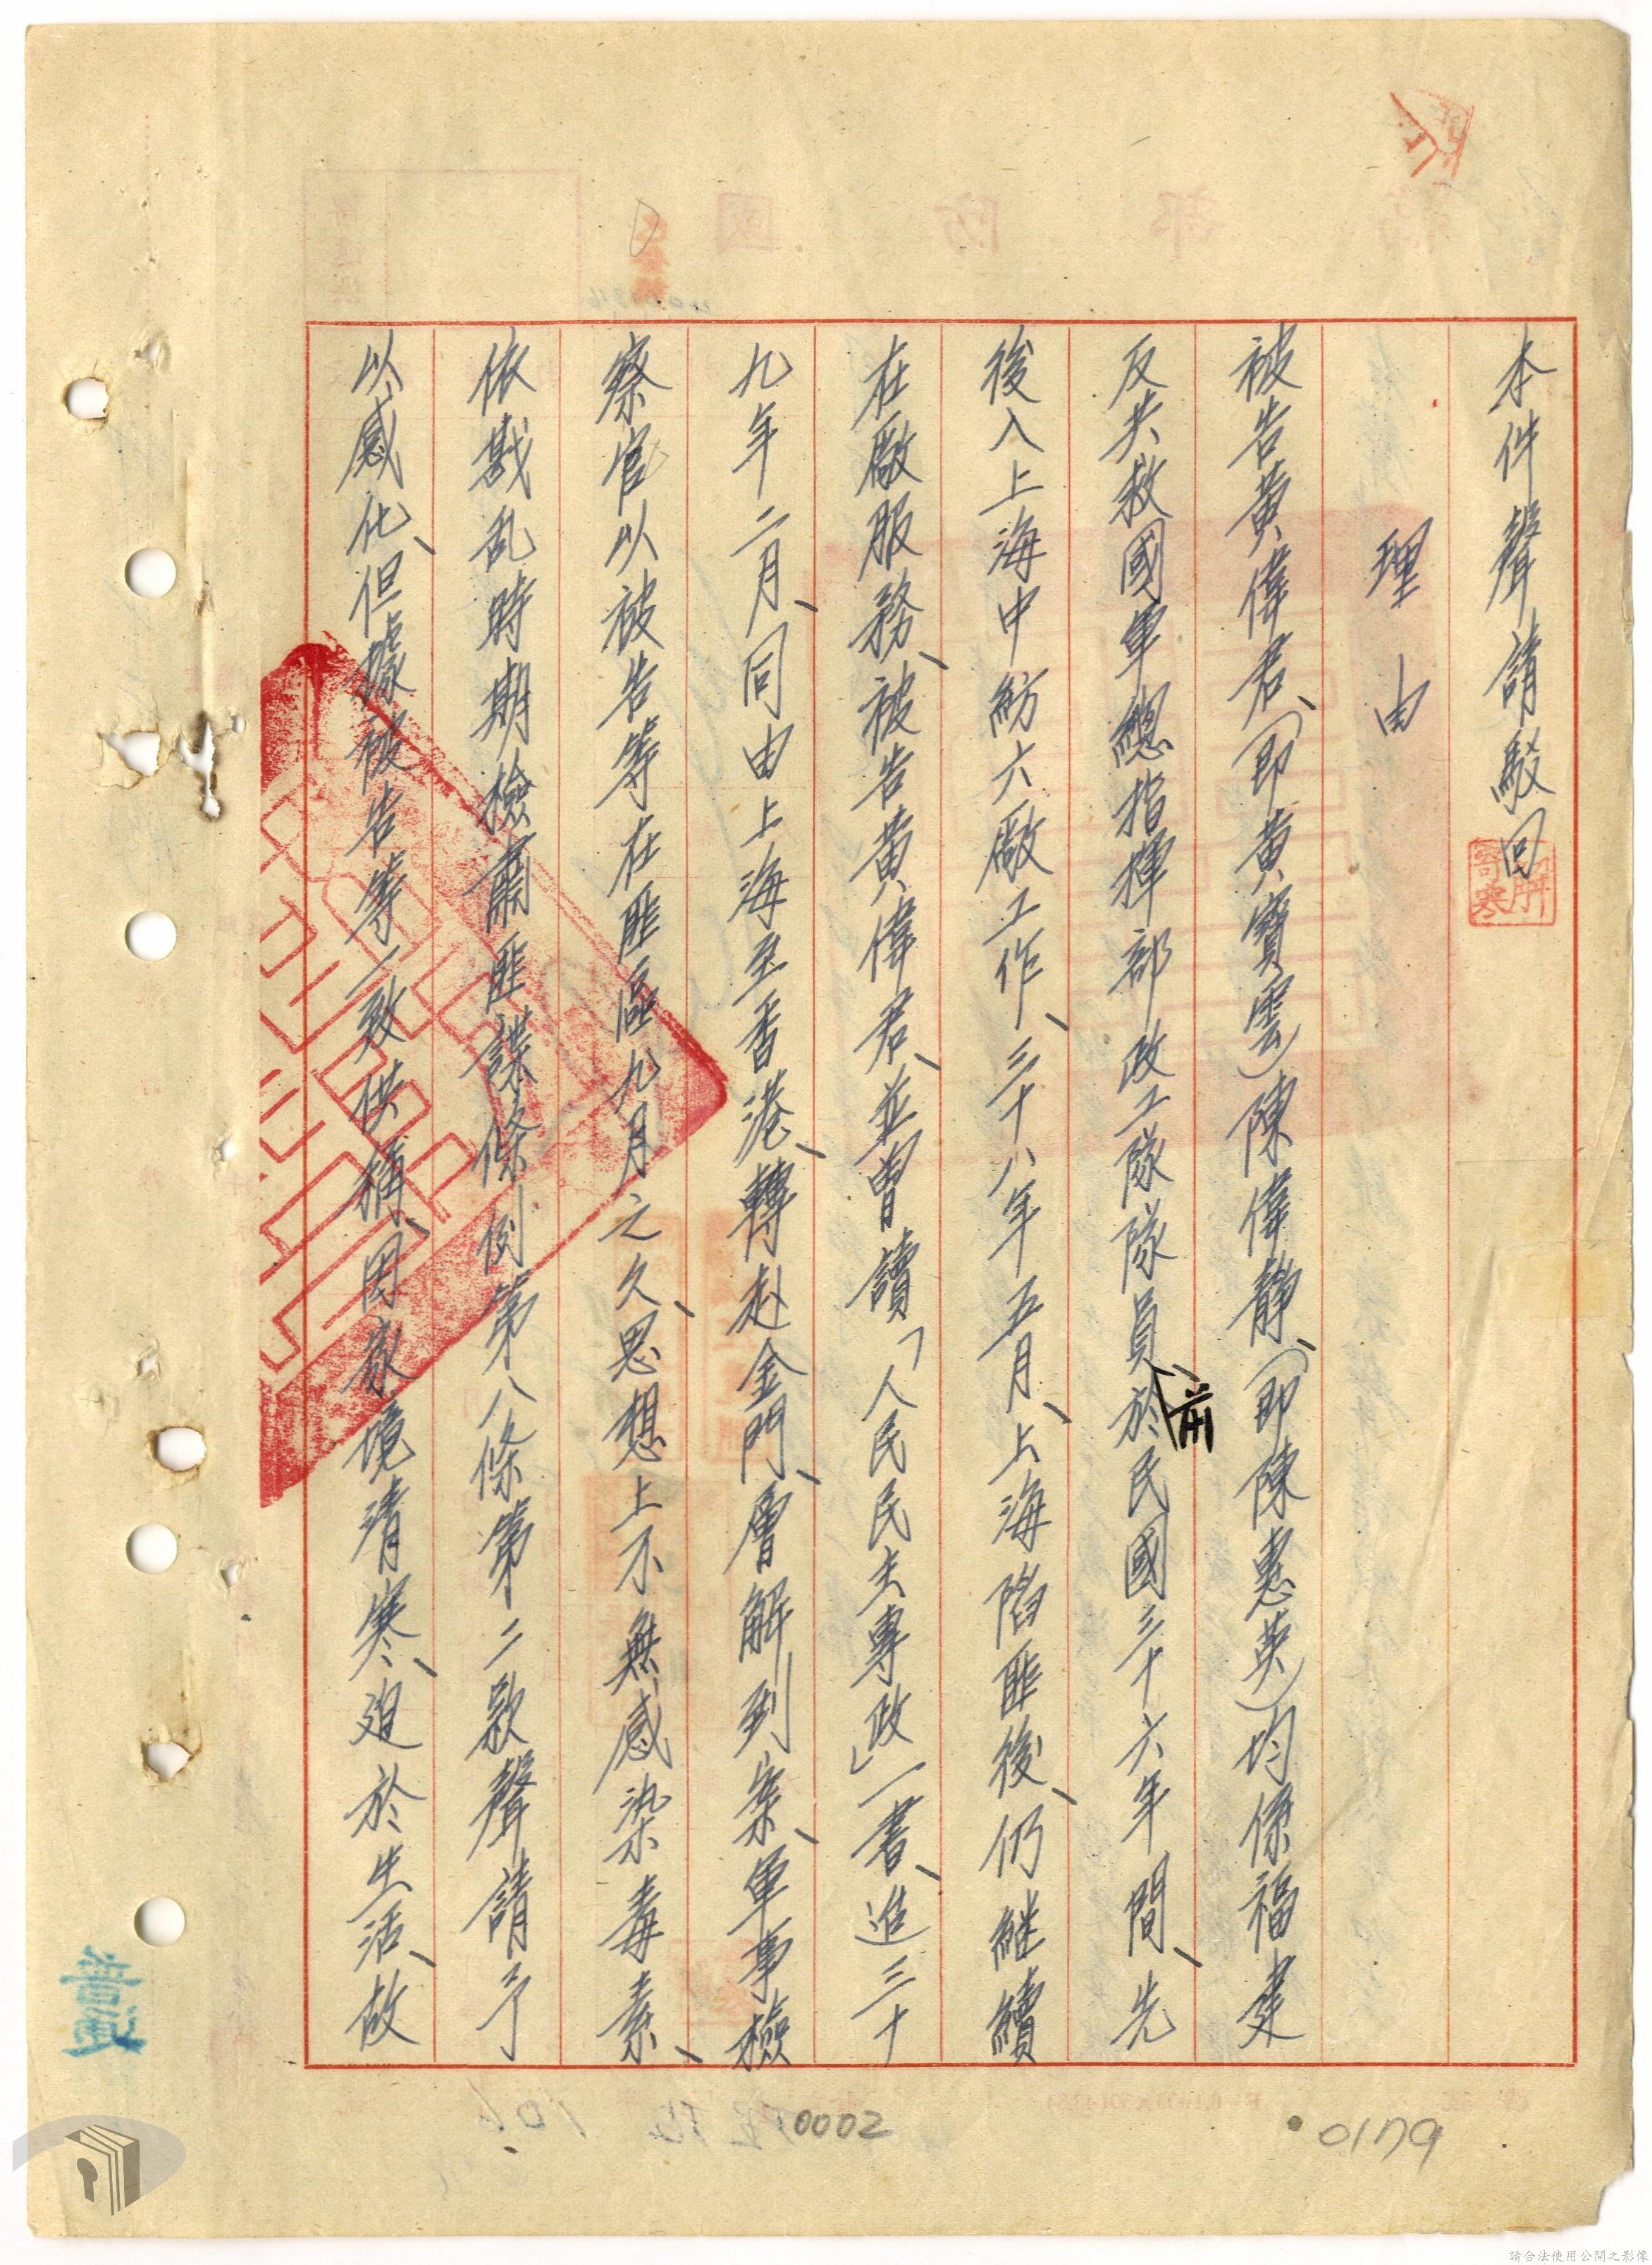 本件聲請駁回
理由
被告黃偉君、(即黃寶雲)陳偉靜、(即陳惠英)均係福建
反共救國軍總指揮部政工隊隊員前於民國三十六年間、先
後入上海中紡六廠工作、三十八年五月、上海陷匪後、仍繼續
在廠服務、被告黃偉君、並曾讀「人民民主專政」一書、迨三十
九年二月、同由上海至香港、轉赴金門、層解到案、軍事檢
察官以被告等在匪區九月之久、思想上不無感染毒素、
依戡乱時期檢肅匪諜條例第八條第二款聲請予
以感化、但據被告等一致供稱、因家境清寒、迫於生活、故
0002
0179
請合法使用公開之影像